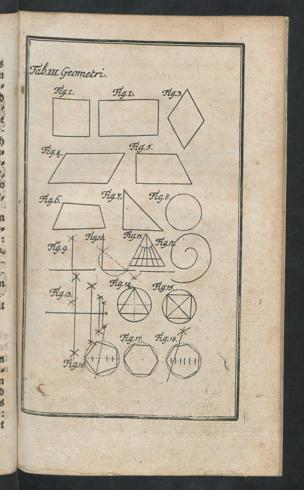 Tab. III. Geometri.
Fig. 1. Fig. 2. Fig. 3.
Fig. 4. Fig. 5.
Fig. 6. Fig. 7. Fig. 8.
Fig. 9. Fig. 10. Fig. 11. Fig. 12.
Fig. 13. Fig. 14. Fig. 15.
Fig. 16. Fig. 17. Fig. 18.